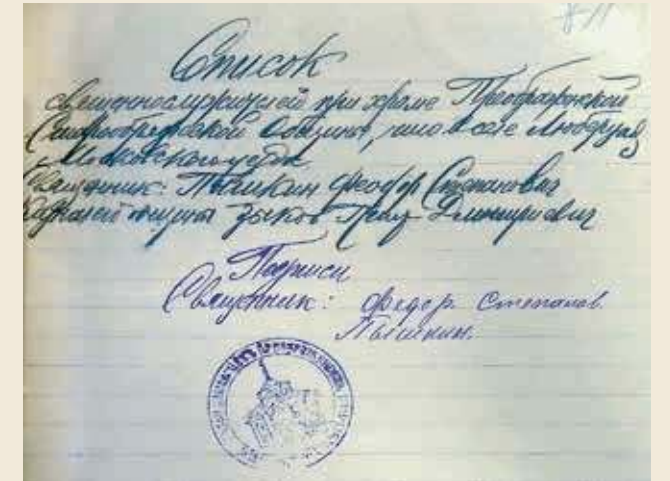 8-11
Список
священнослужителей при храме Преображенской
Старообрядческой Общины, что в селе Люберцах
Московского уезда
Священник: Пышкин Феодор Степанович
Зыков Петр Дмитриевич
Подписи
Священник: Федор. Степанов.
Пышкин.